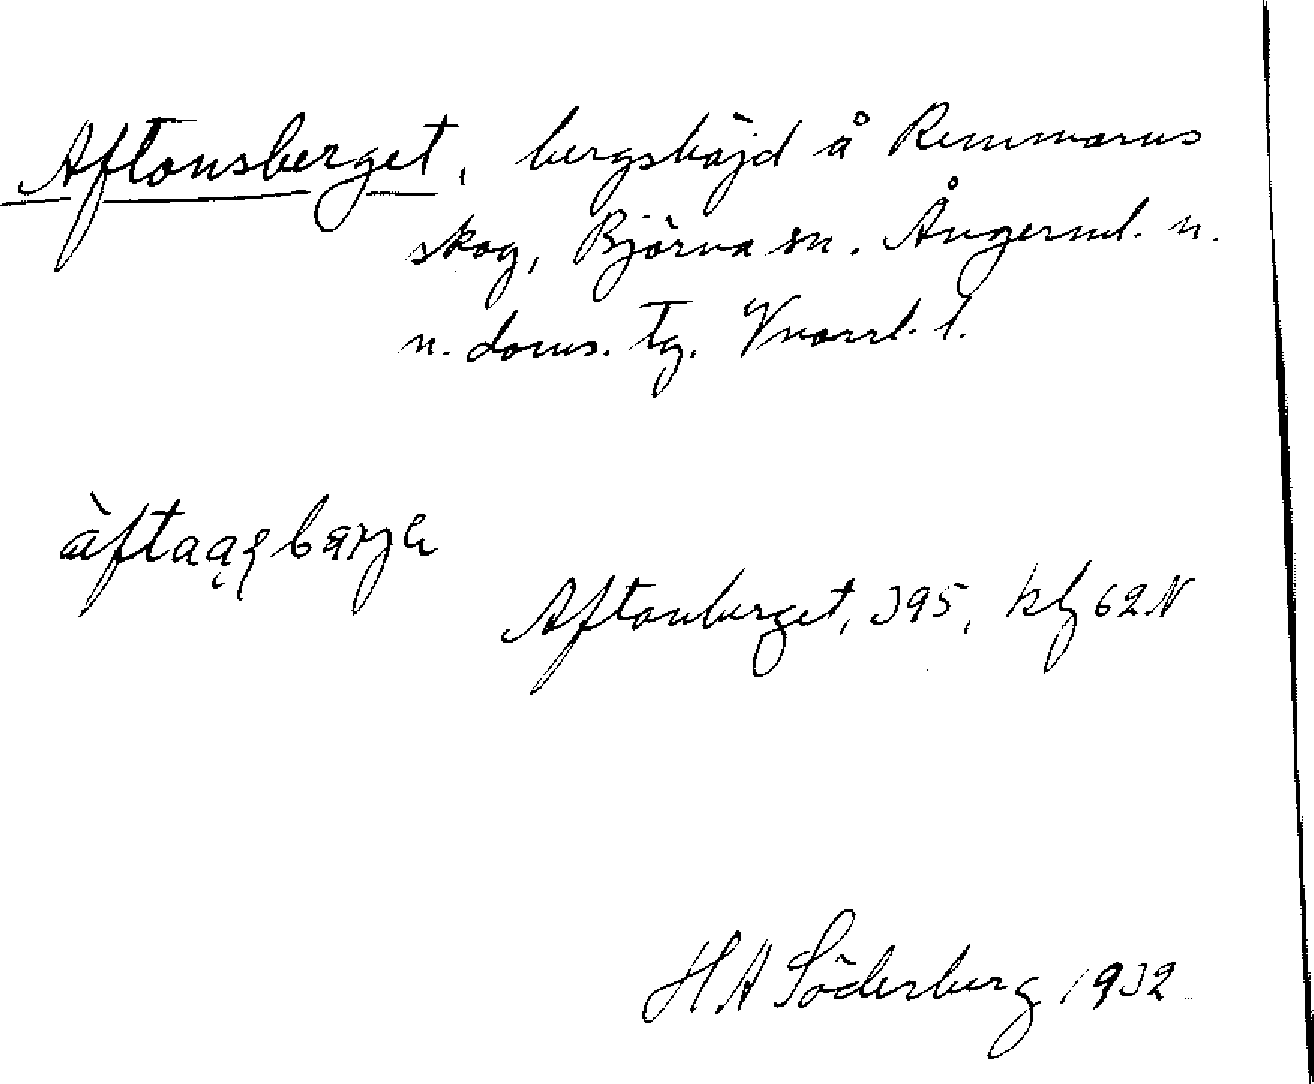 Aftonsberget, bergshöjd å Remmarns
skog, Björna sn. Ångerml. n.
n. doms. tg. Vnorrl. l.
Aftonberget, 395, kbl 62N
HA Söderberg 1932